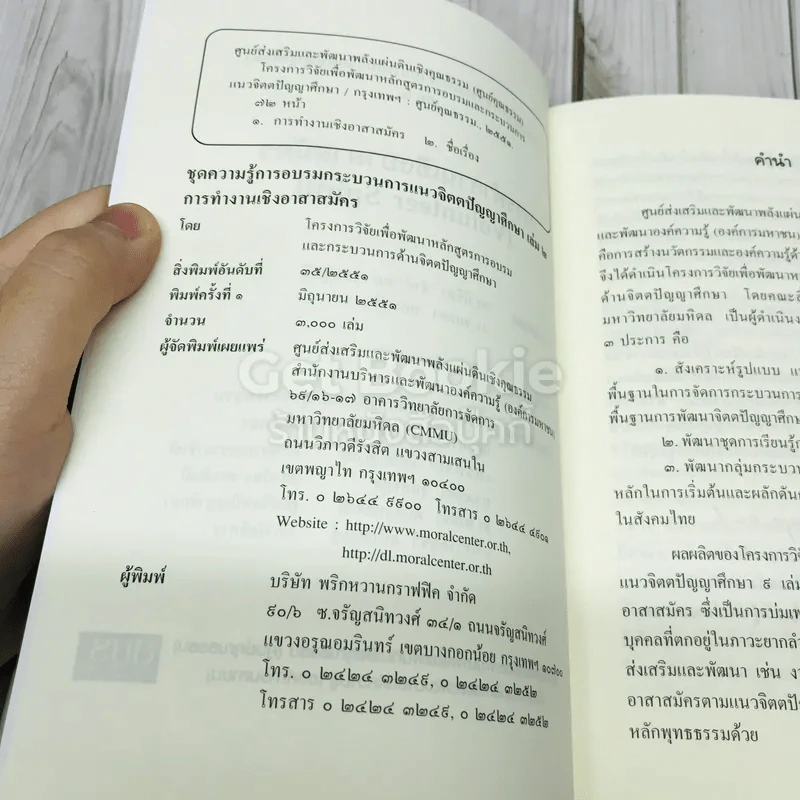 ศูนย์ส่งเสริมและพัฒนาพลังแผ่นดินเชิงคุณธรรม (ศูนย์คุณธรรม)
โครงการวิจัยเพื่อพัฒนาหลักสูตรการอบรมและกระบวนการ
แนวจิตตปัญญาศึกษา / กรุงเทพฯ : ศูนย์คุณธรรม., ๒๕๕๑.
๗๒ หน้า
๑. การทำงานเชิงอาสาสมัคร ๒. ชื่อเรื่อง
ชุดความรู้การอบรมกระบวนการแนวจิตตปัญญาศึกษา เล่ม ๒
การทำงานเชิงอาสาสมัคร
โดย โครงการวิจัยเพื่อพัฒนาหลักสูตรการอบรม
และกระบวนการด้านจิตตปัญญาศึกษา
สิ่งพิมพ์อันดับที่ ๓๕/๒๕๕๑
พิมพ์ครั้งที่ ๑ มิถุนายน ๒๕๕๑
จำนวน ๓,๐๐๐ เล่ม
ผู้จัดพิมพ์เผยแพร่ ศูนย์ส่งเสริมและพัฒนาพลังแผ่นดินเชิงคุณธรรม
สำนักงานบริหารและพัฒนาองค์ความรู้ (องค์การมหาชน)
๖๙/๑๖-๑๗ อาคารวิทยาลัยการจัดการ
มหาวิทยาลัยมหิดล (CMMU)
ถนนวิภาวดีรังสิต แขวงสามเสนใน
เขตพญาไท กรุงเทพฯ ๑๐๔๐๐
โทร. ๐ ๒๖๔๔ ๙๙๐๐ โทรสาร ๐ ๒๖๔๔ ๔๙๐๑
Website : http://www.moralcenter.or.th,
http://dl.moralcenter.or.th
ผู้พิมพ์ บริษัท พริกหวานกราฟฟิค จำกัด
๙๐/๖ ซ.จรัญสนิทวงศ์ ๓๔/๑ ถนนจรัญสนิทวงศ์
แขวงอรุณอมรินทร์ เขตบางกอกน้อย กรุงเทพฯ ๑๐๗๐๐
โทร. ๐ ๒๔๒๔ ๓๒๔๙, ๐ ๒๔๒๔ ๓๒๕๒
โทรสาร ๐ ๒๔๒๔ ๓๒๔๙, ๐ ๒๔๒๔ ๓๒๕๒
Get Bookie
ร้านหนังสือบุ๊คกี้
คำนำ
ศูนย์ส่งเสริมและพัฒนาพลังแผ่น
และพัฒนาองค์ความรู้ (องค์การมหาชน)
คือการสร้างนวัตกรรมและองค์ความรู้
จึงได้ดำเนินโครงการวิจัยเพื่อพัฒนา
ด้านจิตตปัญญาศึกษา โดยคณะ
มหาวิทยาลัยมหิดล เป็นผู้ดำเนิน
๓ ประการ คือ
๑. สังเคราะห์รูปแบบ
พื้นฐานในการจัดการกระบวนการ
พื้นฐานการพัฒนาจิตตปัญญาศึกษา
๒. พัฒนาชุดการเรียนรู้
๓. พัฒนากลุ่มกระบวน
หลักในการเริ่มต้นและผลักดัน
ในสังคมไทย
ผลผลิตของโครงการวิจัย
แนวจิตตปัญญาศึกษา ๙ เล่ม
อาสาสมัคร ซึ่งเป็นการบ่มเพ
บุคคลที่ตกอยู่ในภาวะยากลำ
ส่งเสริมและพัฒนา เช่น
อาสาสมัครตามแนวจิตตปัญ
หลักพุทธธรรมด้วย